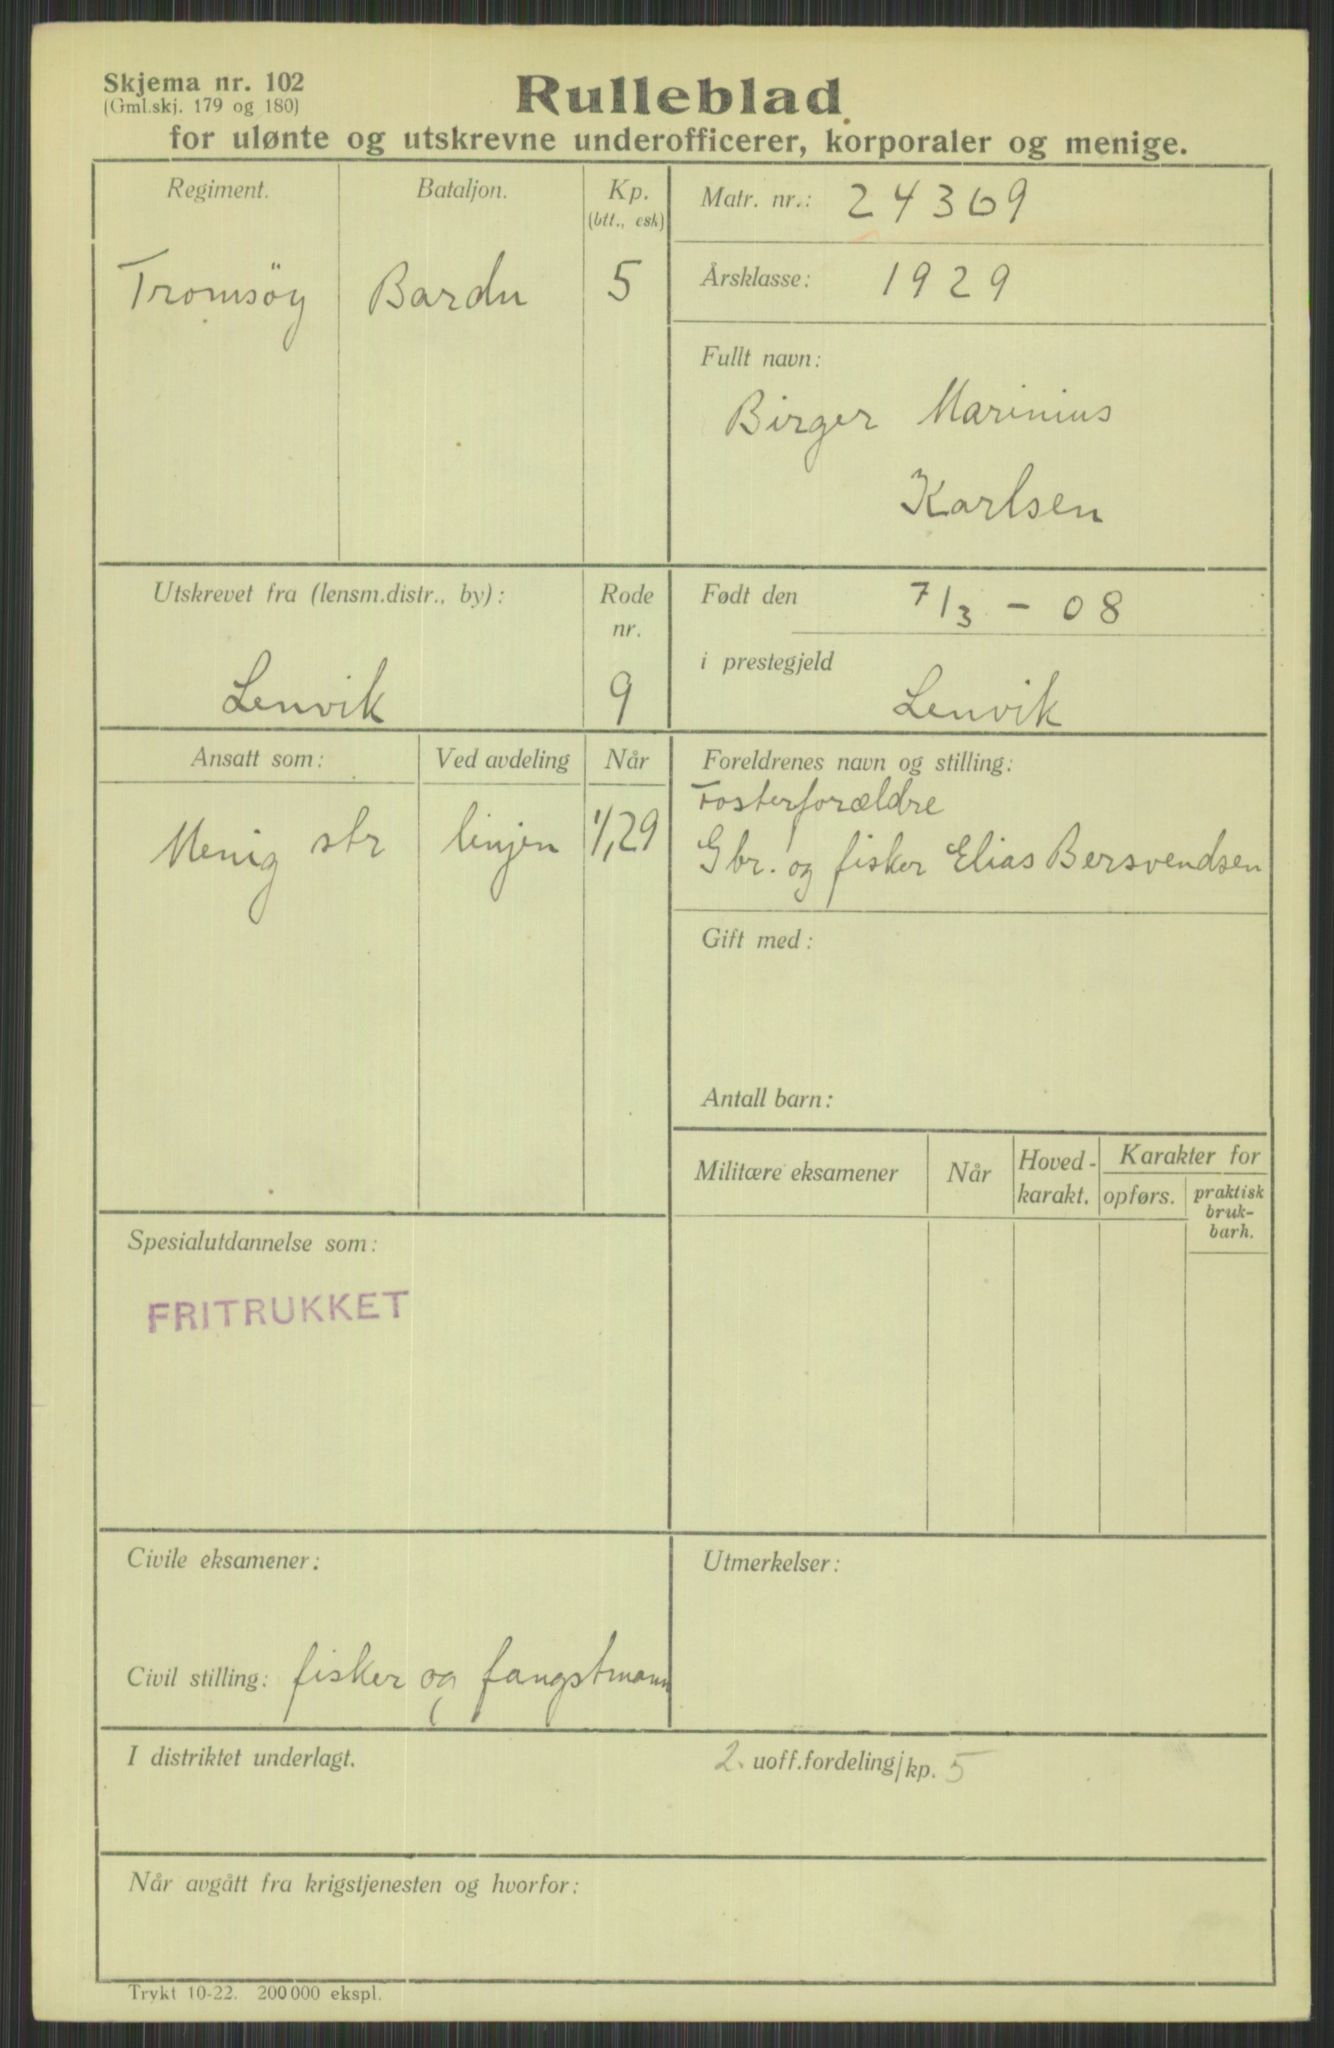 Skjema nr. 102
(Gml.skj. 179 og 180)
Rulleblad
for ulønte og utskrevne underofficerer, korporaler og menige.
Regiment.
Bataljon.
Kp.
(btt., esk)
Tromsöy
Bardu
5
Matr. nr.: 24369
Årsklasse: 1929
Fullt navn:
Birger Marinius
Karlsen
Utskrevet fra (lensm.distr., by):
Rode
nr.
Lenvik
9
Født den 7/3 - 08
i prestegjeld
Lenvik
Ansatt som:
Ved avdeling
Når
Menig str
linjen
1/1 29
Foreldrenes navn og stilling:
Fosterforældre
Gbr. og fisker Elias Bersvendsen
Gift med:
Antall barn:
Militære eksamener
Når
Hoved-
karakt.
Karakter for
opførs.
praktisk
bruk-
barh.
Spesialutdannelse som:
FRITRUKKET
Civile eksamener:
Civil stilling: fisker og fangstmann
Utmerkelser:
I distriktet underlagt.
2. uoff.fordeling/kp. 5
Når avgått fra krigstjenesten og hvorfor:
Trykt 10-22. 200 000 ekspl.